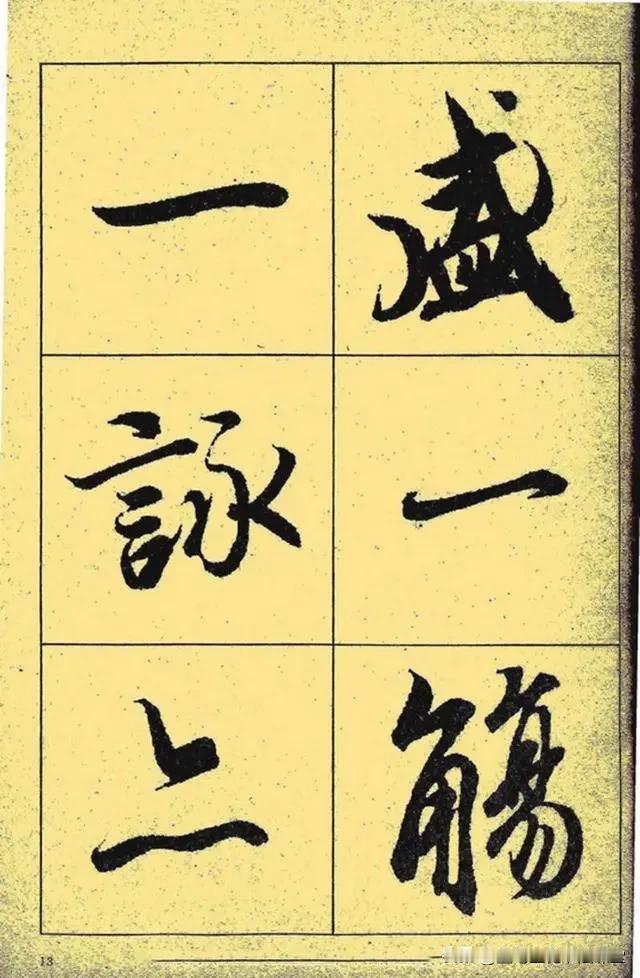 盛一觴
一詠亦
13